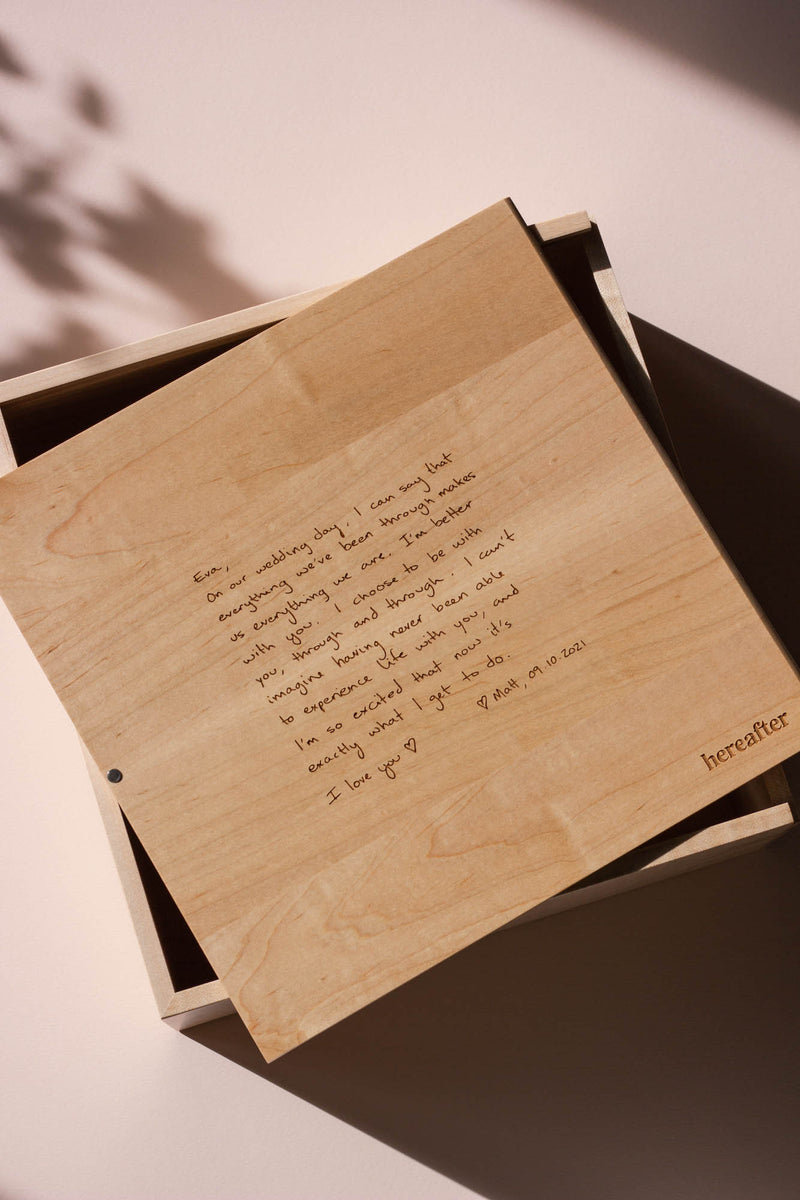 Eva,
On our wedding day, I can say that
everything we've been through makes
us everything we are. I'm better
with you. I choose to be with
you, through and through. I can't
imagine having never been able
to experience life with you, and
I'm so excited that now it's
exactly what I get to do.
I love you ♡
♡ Matt, 09.10.2021
hereafter